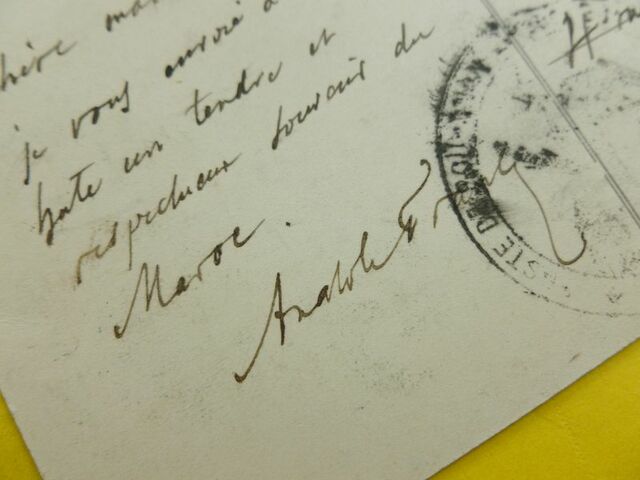 chère mam
je vous envoie a
hate un tendre et
respectueux souvenir du
Maroc.
Anatole France